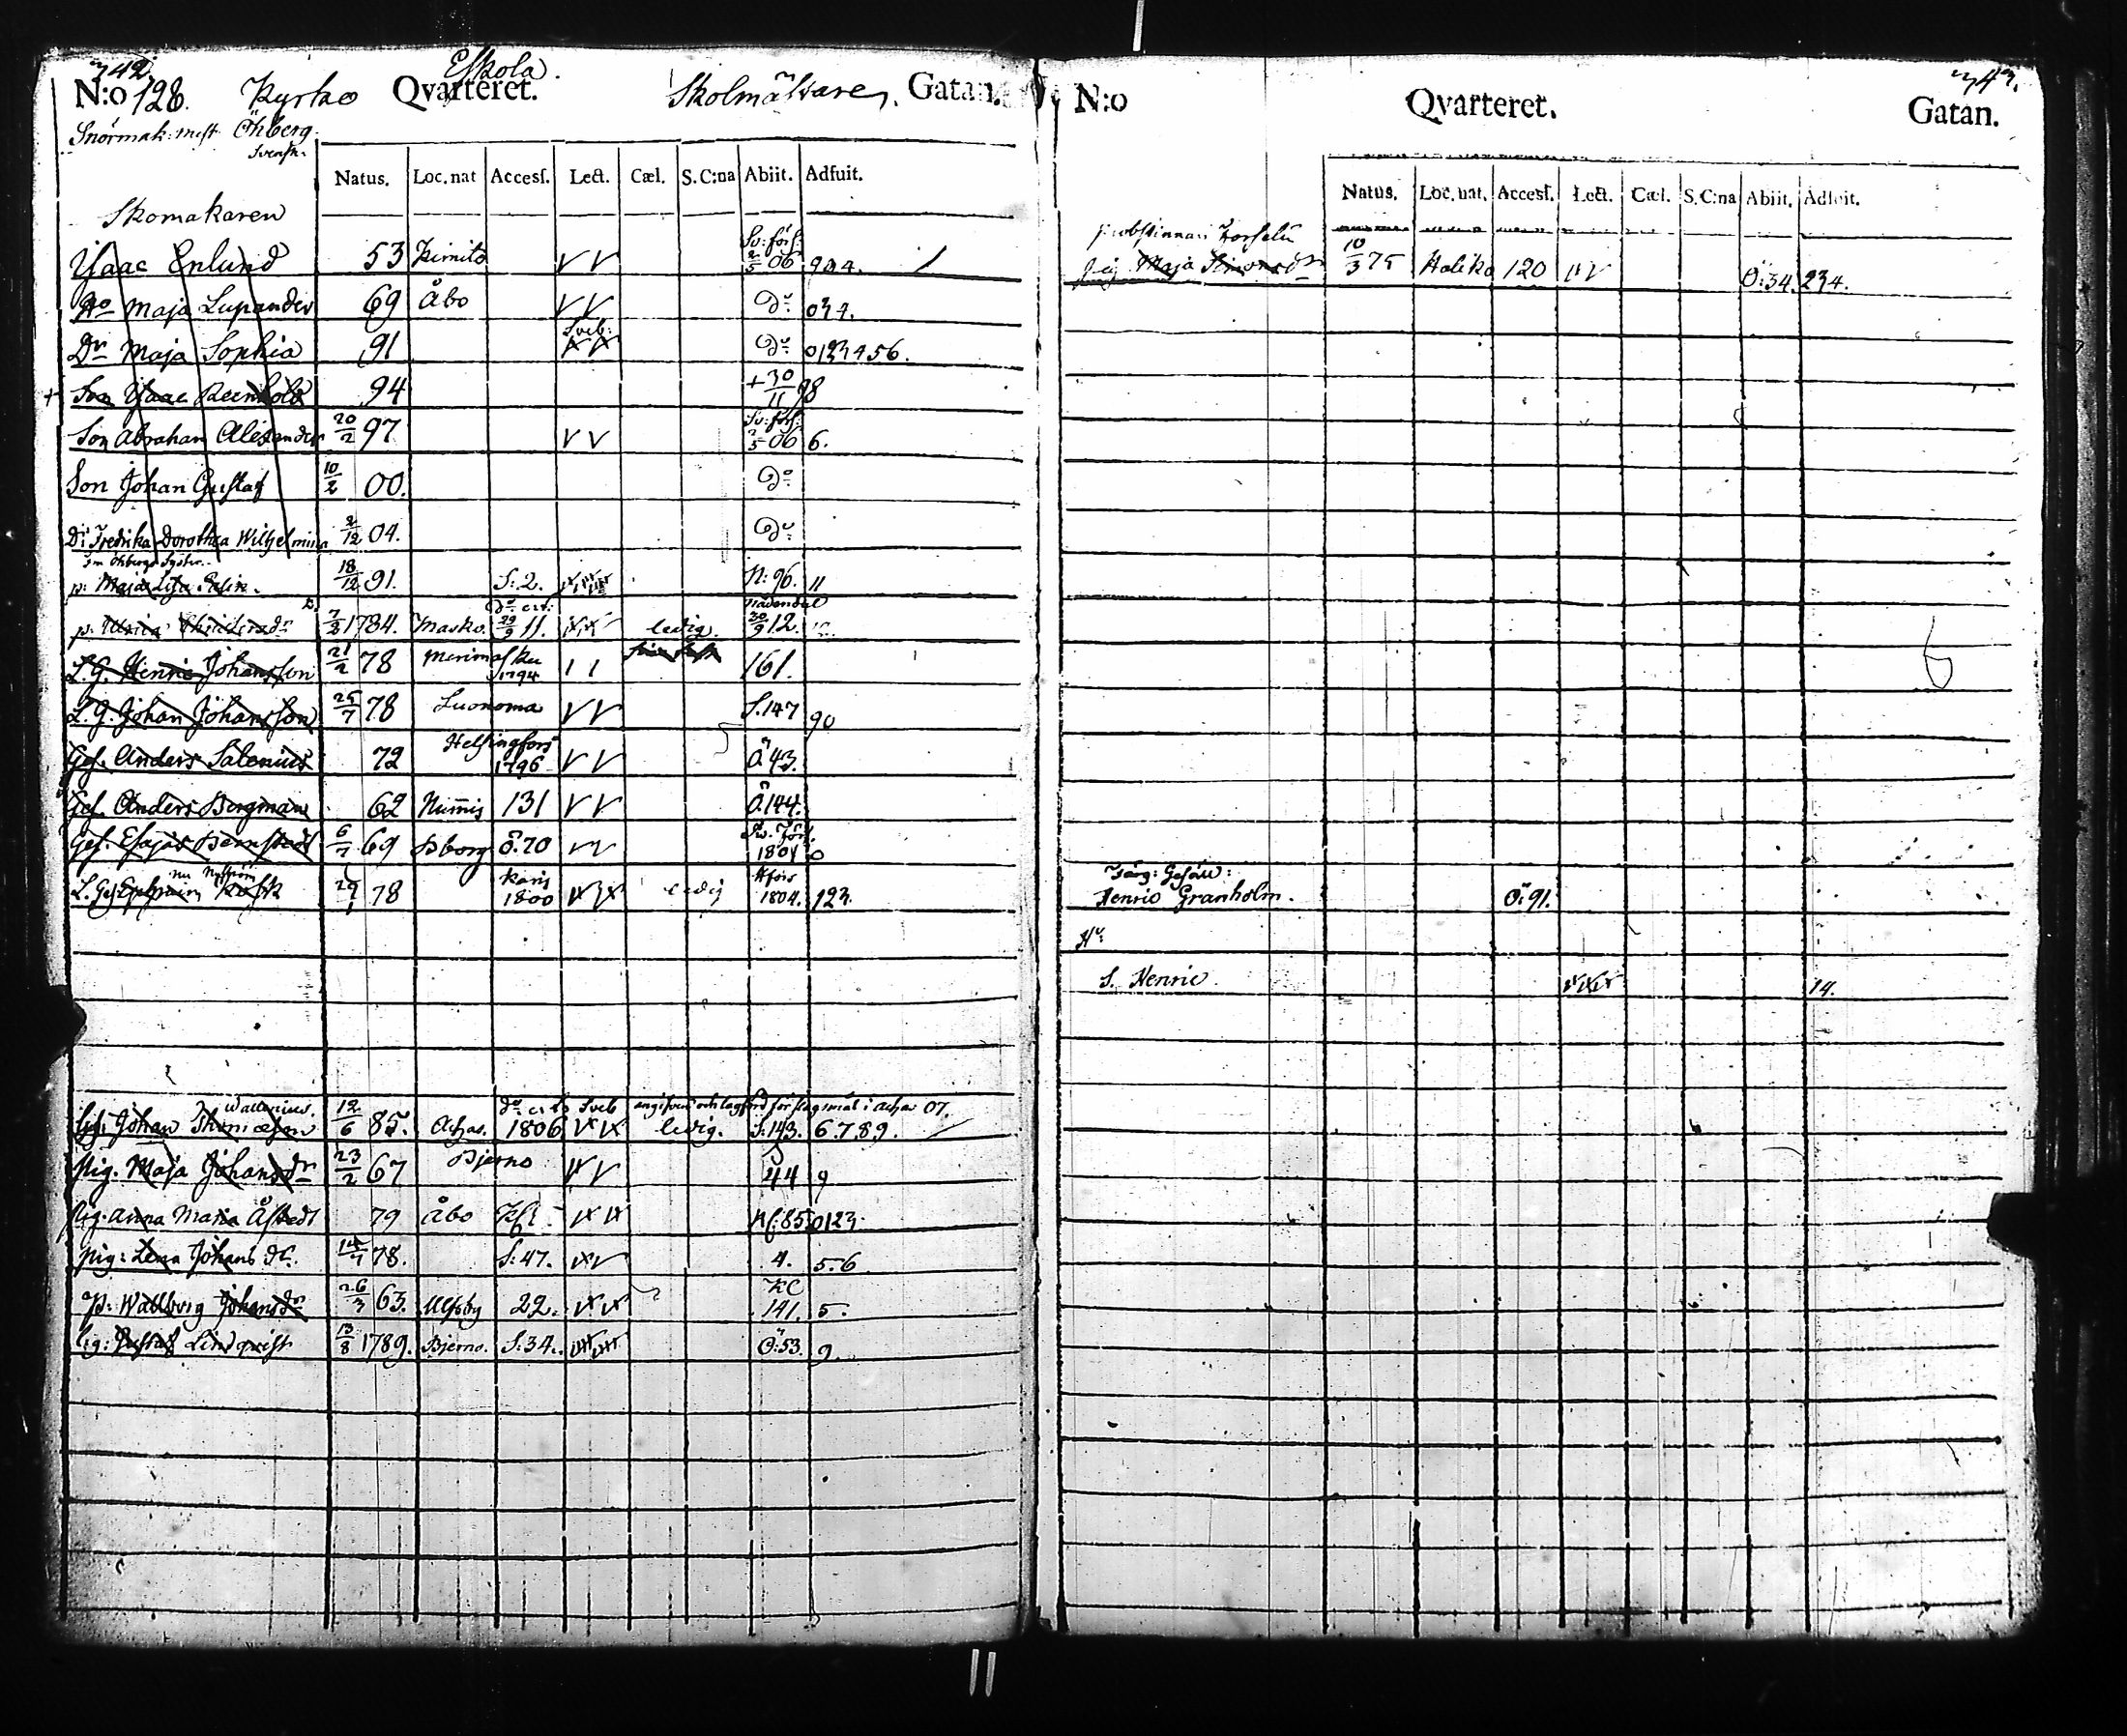 342.
Eskola.
N:o 128. Kyrko Qvarteret. Skolmästare Gatan.
Snörmak: mest. Öhberg.
Svensk.
Natus. Loc. nat Accesſ. Lect. Cæl. S. C:na Abiit. Adfuit.
Skomakaren
Isaac Enlund 53 Kimito V V Sv: förs: 2/5 06 904.
Ho Maja Lupander 69 Åbo V V Do 034.
Dr Maja Sophia 91 Sveb: Do 0123456.
+ Son Isaac Reinhold 94 + 30/11 98
Son Abraham Alexander 20/2 97 V V Sv: förs: 2/5 06 6.
Son Johan Gustaf 10/2 00. Do
Dr Fredrika Dorothea Wilhelmina 2/12 04. Do
Öhbergs Syster
p: Maja Lisa 18/12 91. S: 2. N: 96. 11
p. Ulrica 7/2 1784. Masko. 29/9 11. ledig. Nådendal 20/9 12.
L. G. Henric Johansson 21/2 78 Merimasku 1794 161.
L. G. Johan Johansson 25/7 78 Luonoma V V S. 147 90
Ges. Anders Salenius 72 Helsingfors 1796 V V Ö 43.
Ges. Anders Bergman 62 Nummis 131 V V Ö. 144.
Ges. Esajas Bernstedt 6/7 69 Borg Ö. 70 V V Sv. förs. 1801 0
nu Nyström
L. Ges Ephraim Kosk 29/1 78 Karis 1800 ledig Hfors 1804. 123.
Wallenius. do Sveb i Achas 07.
Ges. Johan 12/6 85. Achas. 1806 ledig. S: 143. 6789.
Pig. Maja Johansdr 23/2 67 Bjerno S 44 9
Pig. Anna Maria Åstedt 79 Åbo Nf: 85 0123.
Pig: Lena Johansdr. 14/7 78. S: 47. 4. 5.6
P: Wallborg Johansdr 26/3 63. Ulfsby 22. KC 141. 5.
Gustaf Lindquist 13/8 1789. Bjerno. S: 34. Ö: 53. 9.
343.
N:o Qvarteret. Gatan.
Natus. Loc. nat. Accesſ. Lect. Cæl. S. C:na Abiit. Adfuit.
Prostinnan
Pig Maja Simonsdr 10/3 75 Haliko 120 Ö: 34. 234.
Färg: Gesäll:
Henric Granholm. Ö: 91.
Hu:
S. Henric. 14.